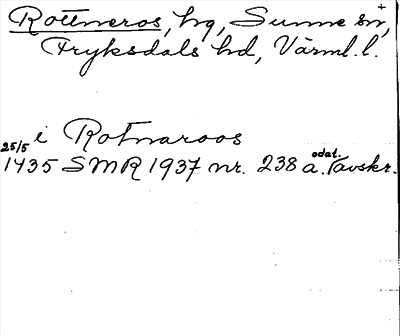 Rottneros, hg, Sunne sn,
Fryksdals hd, Värml. l.
i Rotnaroos
25/5 1435 SMR 1937 nr. 238 a. odat. avskr.